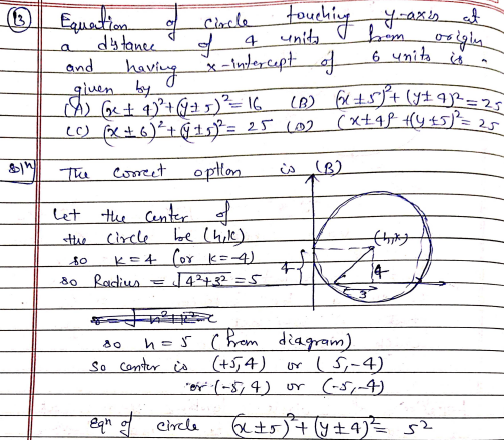 (13) Equation of circle touching y-axis at
a distance of 4 units from origin
and having x-intercept of 6 units is -
given by
(A) (x ± 4)²+(y ± 5)²= 16 (B) (x ± 5)²+ (y ± 4)² = 25
(C) (x ± 6)²+(y ± 5)²= 25 (D) (x ± 4)² +(y ± 5)² = 25
Solⁿ) The correct option is (B)
Let the center of
the circle be (h,k)
so k = 4 (or k = -4)
so Radius = √4²+3² = 5
(h,k)
4
4
3
so h = 5 (from diagram)
so center is (+5,4) or (5,-4)
or (-5,4) or (-5,-4)
eqⁿ of circle (x ± 5)²+ (y ± 4)² = 5²